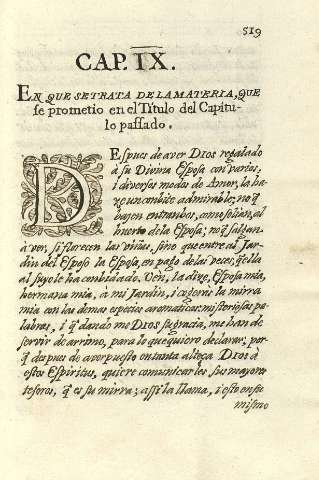 519
CAP. IX.
EN QUE SE TRATA DE LA MATERIA, QUE
se prometio en el Titulo del Capitu-
lo passado.
DEspues de aver DIOS regalado
à su Divina Esposa con varios,
i diversos modos de Amor, la ha-
ze un conbite admirable; no q̃
bajen entrambos, como solian, al
huerto de la Esposa; no q̃ salgan
à ver, si florecen las viñas, sino que entre al Jar-
din del Esposo la Esposa, en pago de las veces, q̃ ella
al suyo le ha conbidado. Ven, la dize, Esposa mia,
hermana mia, à mi Jardin, i cogeras la mirra
mia con las demas especies aromaticas: misteriosas pa-
labras, i q̃ dandome DIOS su gracia, me han de
servir de arrimo, para lo que quiero declarar; por-
q̃ despues de aver puesto en tanta alteça DIOS à
estos Espiritus, quiere comunicarles sus mayores
tesoros, q̃ es su mirra; assi la llama, i esto en su
mismo